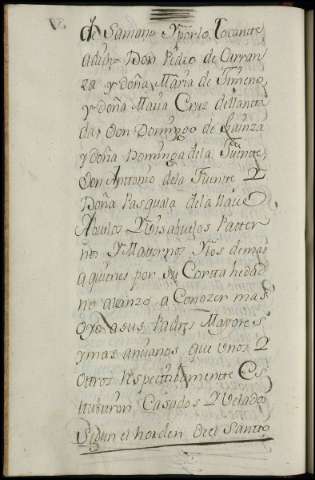 de Samano Yporlo Tocante
adichos Don Pedro de Carran
za y Doña Maria de Timeno,
y Doña Maria Cruz de Manteca
da, Don Domingo de Gainza
y Doña Dominga de la Fuente,
Don Antonio de la Fuente Y
Doña Pasquala de la Nave
Abuelos Y Bisabuelos Pater
nos Y Maternos Ylos demas
a quienes por Su Corta hedad
no alanzo a Conozer mas
oyo a sus Padres Mayores
y mas anzianos que unos Y
Otros Respectibamente Es
tubieron Casados Y Velados
Segun el horden de el Santo